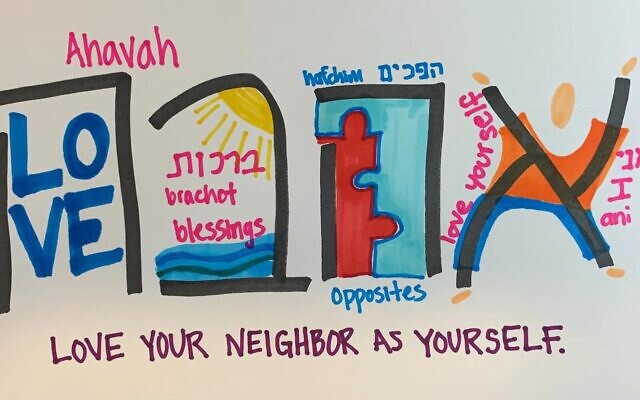 Ahavah
אהבה
LO
VE
ברכות
brachot
blessings
hafachim הפכים
opposites
love yourself
ani I
LOVE YOUR NEIGHBOR AS YOURSELF.